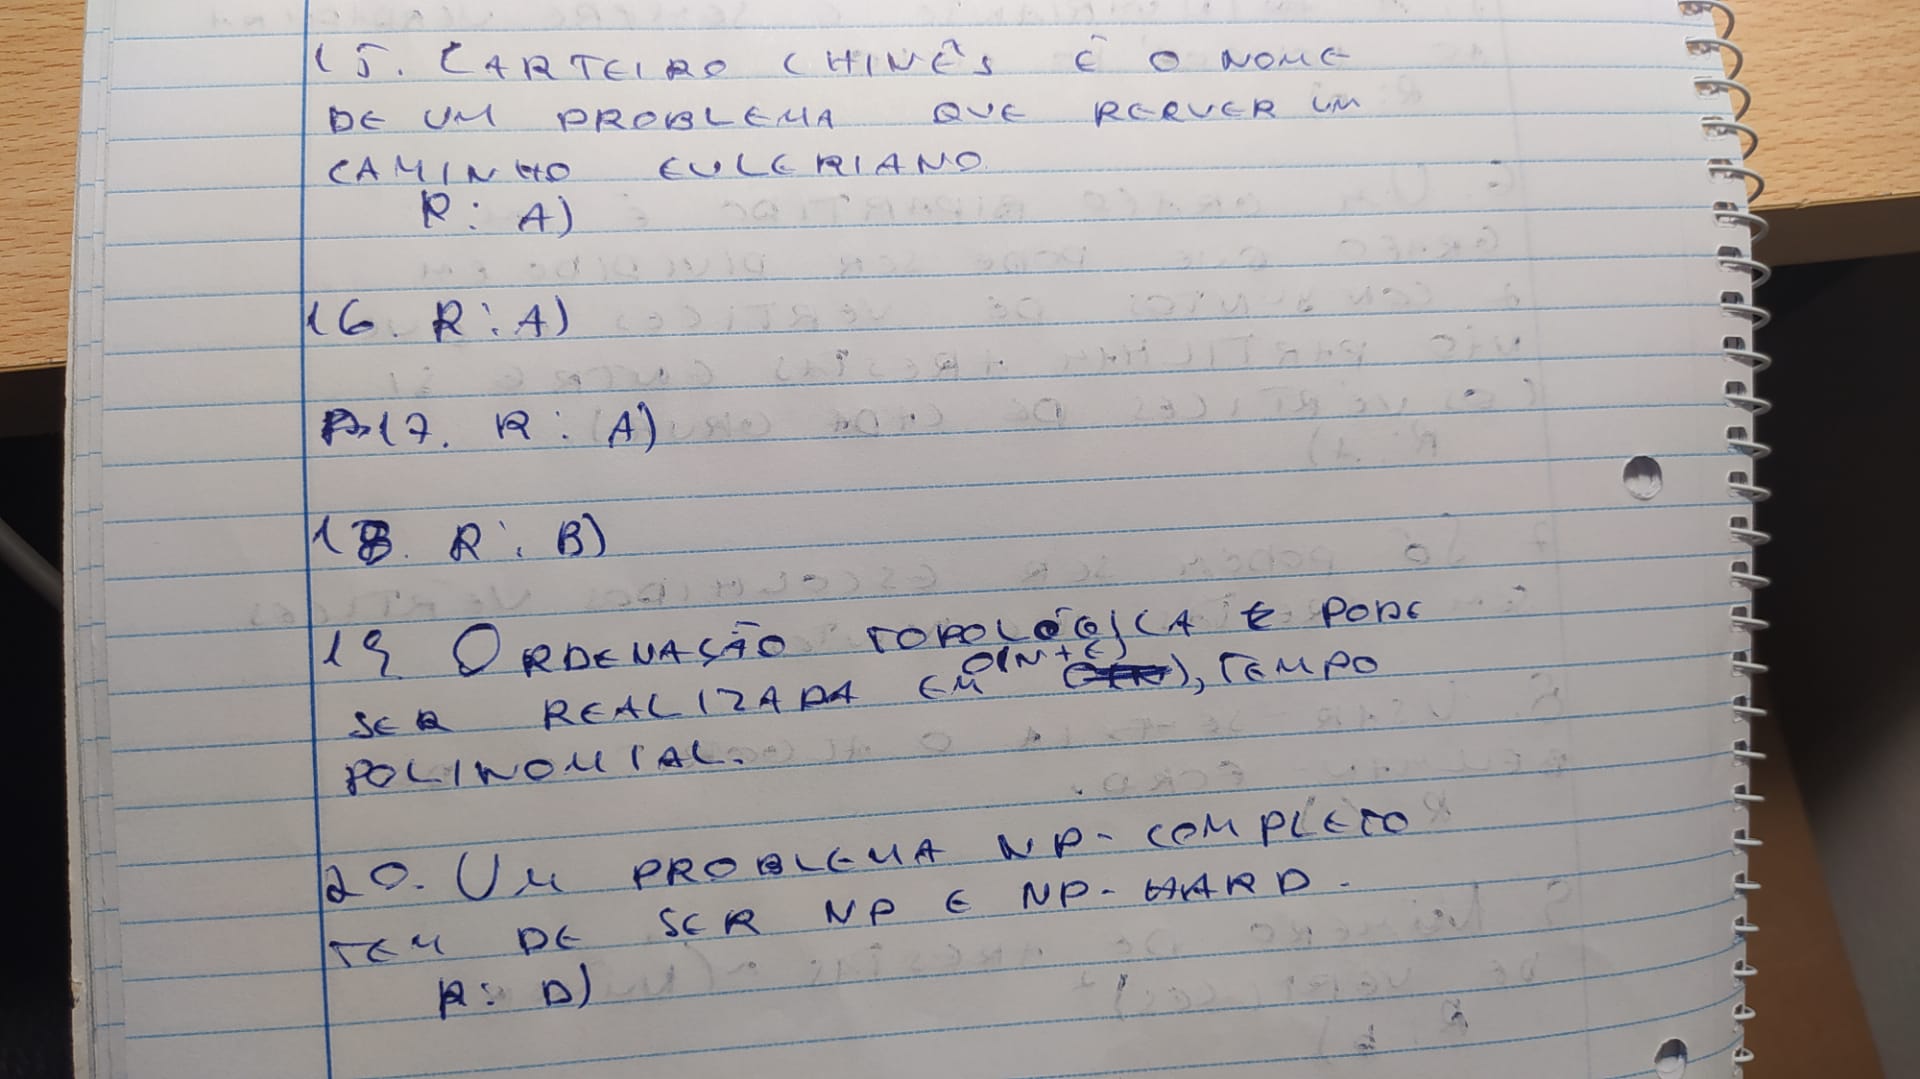 15. CARTEIRO CHINÊS É O NOME
DE UM PROBLEMA QUE REQUER UM
CAMINHO EULERIANO
R: A)
16. R: A)
17. R: A)
18. R: B)
19 ORDENAÇÃO TOPOLÓGICA E PODE
SER REALIZADA EM O(N+E), TEMPO
POLINOMIAL.
20. UM PROBLEMA NP-COMPLETO
TEM DE SER NP E NP-HARD.
R: D)